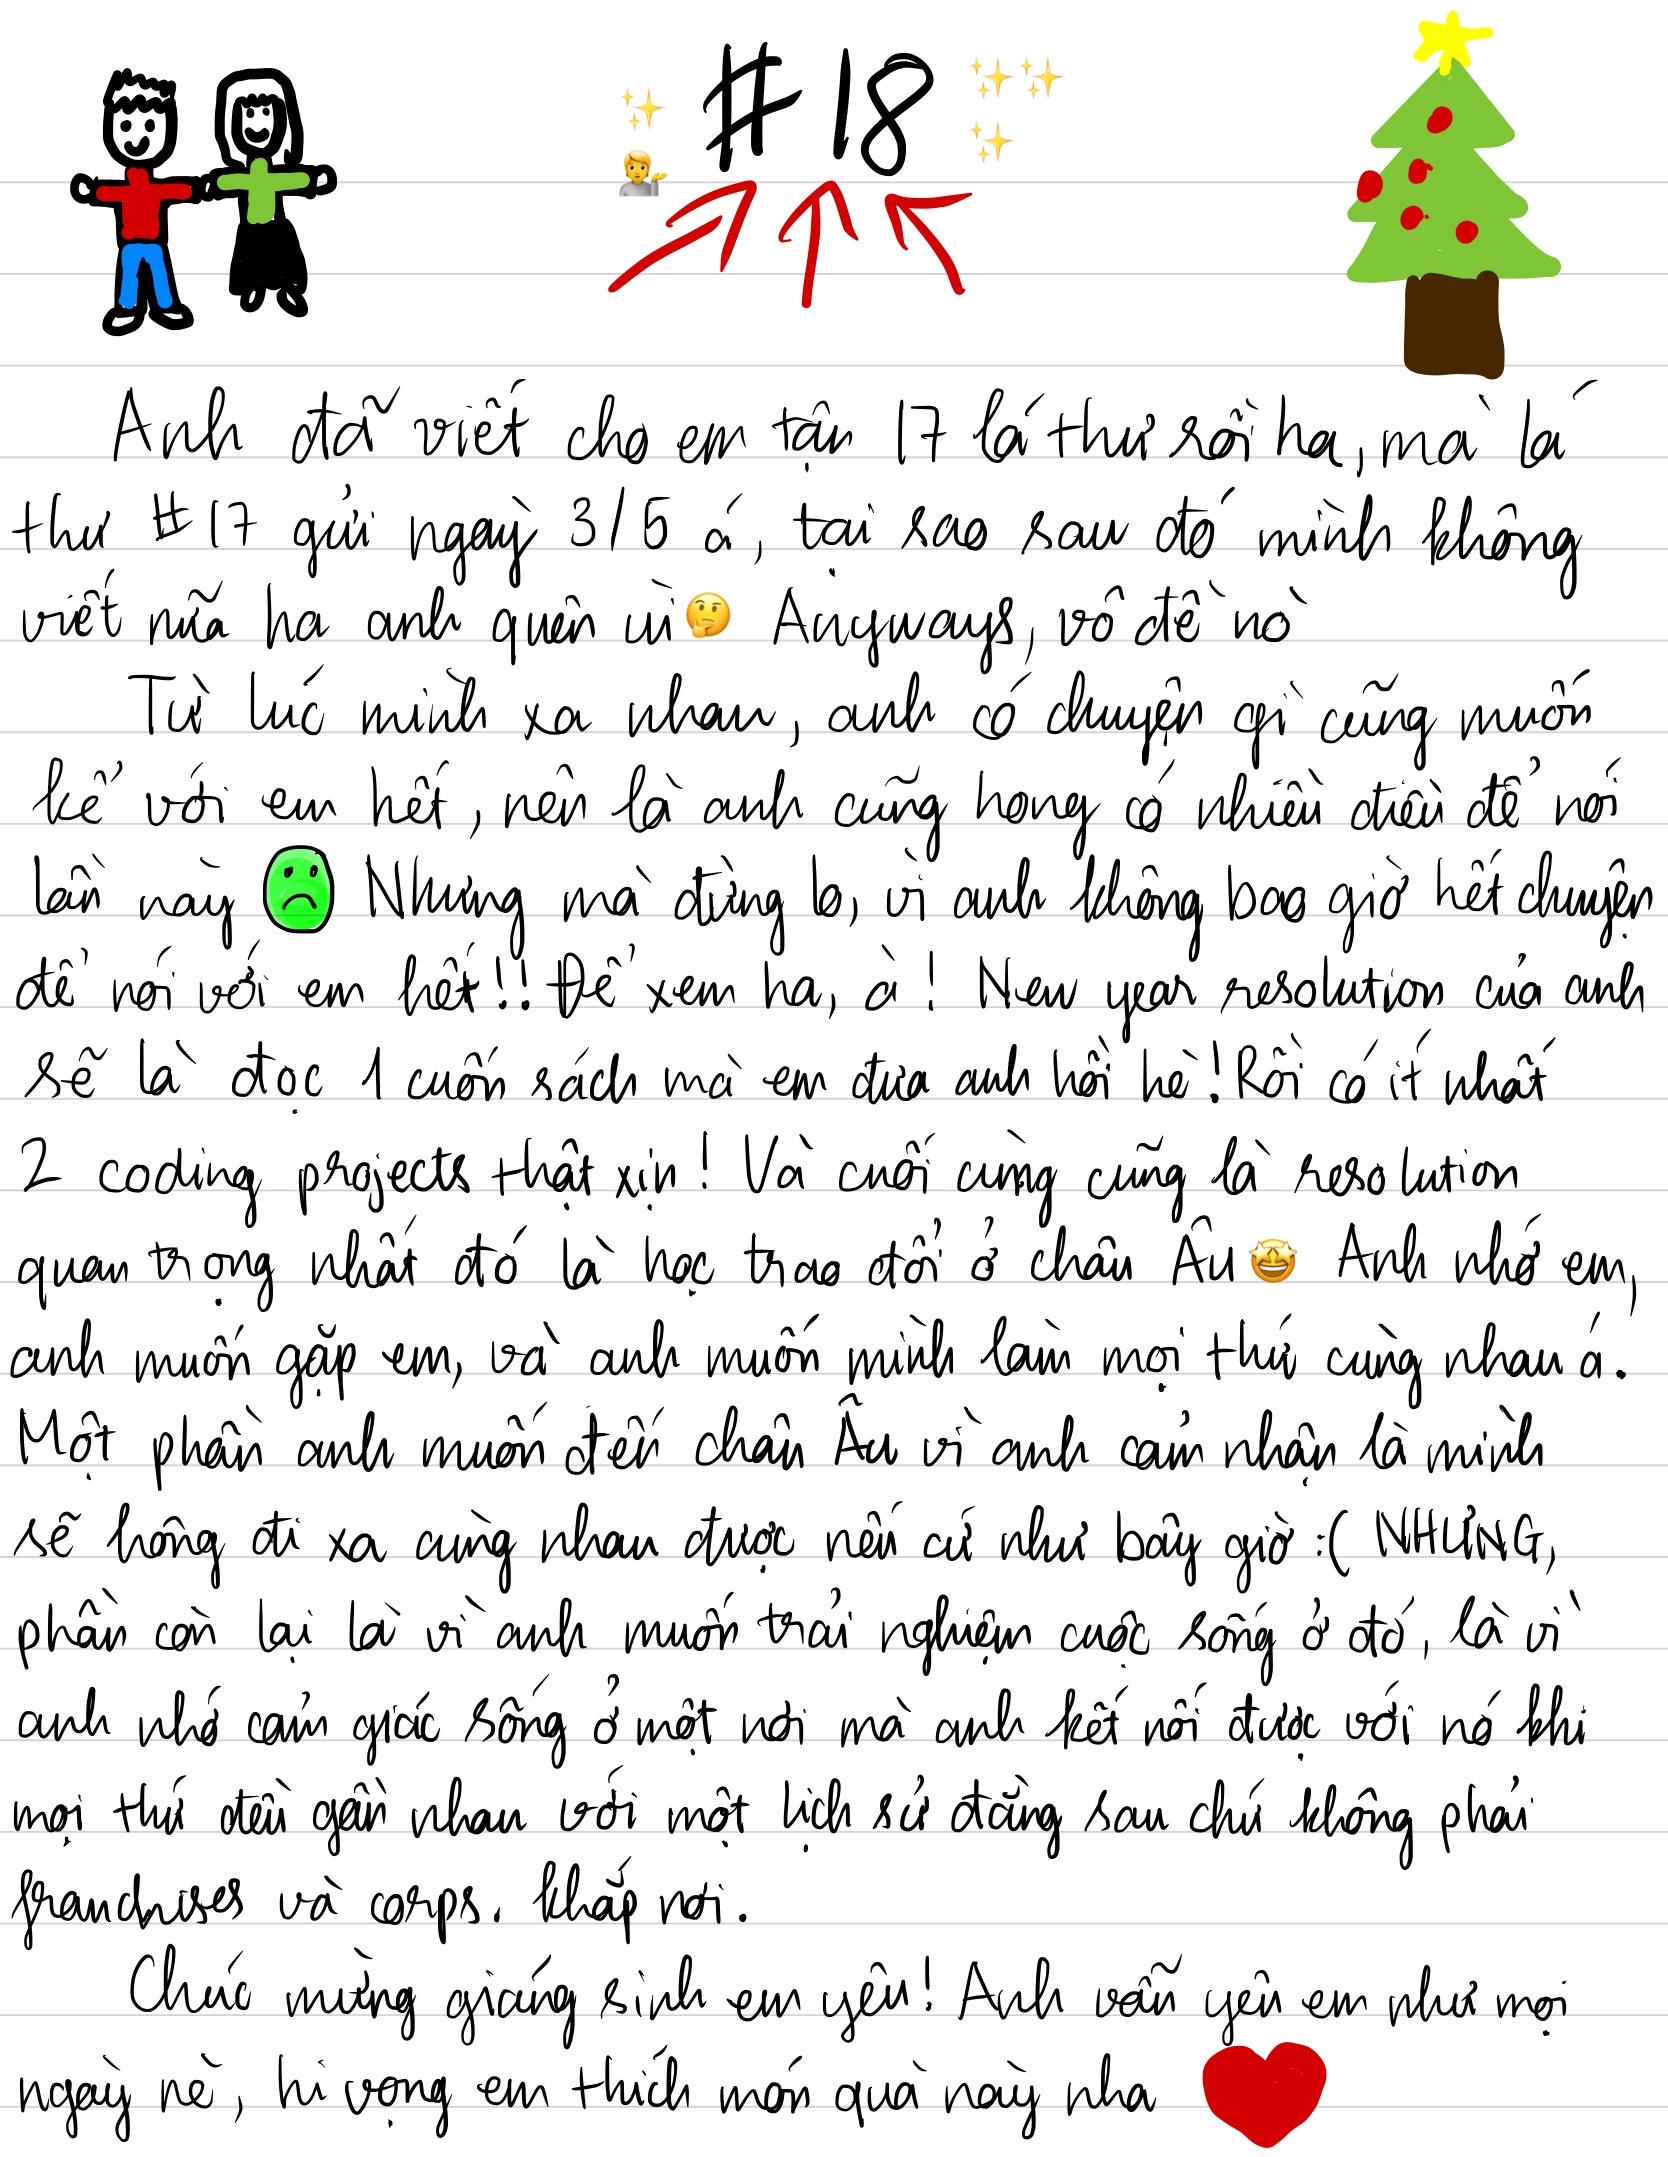 #18
Anh đã viết cho em tận 17 lá thư rồi ha, mà lá
thư #17 gửi ngày 3/5 á, tại sao sau đó mình không
viết nữa ha anh quên ùi🤔 Anyways, vô đề nò
Từ lúc mình xa nhau, anh có chuyện gì cũng muốn
kể với em hết, nên là anh cũng hong có nhiều điều để nói
lần này Nhưng mà đừng lo, vì anh không bao giờ hết chuyện
để nói với em hết!! Để xem ha, à! New year resolution của anh
sẽ là đọc 1 cuốn sách mà em đưa anh hồi hè! Rồi có ít nhất
2 coding projects thật xịn! Và cuối cùng cũng là resolution
quan trọng nhất đó là học trao đổi ở châu Âu🤩 Anh nhớ em,
anh muốn gặp em, và anh muốn mình làm mọi thứ cùng nhau á.
Một phần anh muốn đến châu Âu vì anh cảm nhận là mình
sẽ hông đi xa cùng nhau được nếu cứ như bây giờ :( NHƯNG,
phần còn lại là vì anh muốn trải nghiệm cuộc sống ở đó, là vì
anh nhớ cảm giác sống ở một nơi mà anh kết nối được với nó khi
mọi thứ đều gần nhau với một lịch sử đằng sau chứ không phải
franchises và corps. khắp nơi.
Chúc mừng giáng sinh em yêu! Anh vẫn yêu em như mọi
ngày nè, hi vọng em thích món quà này nha